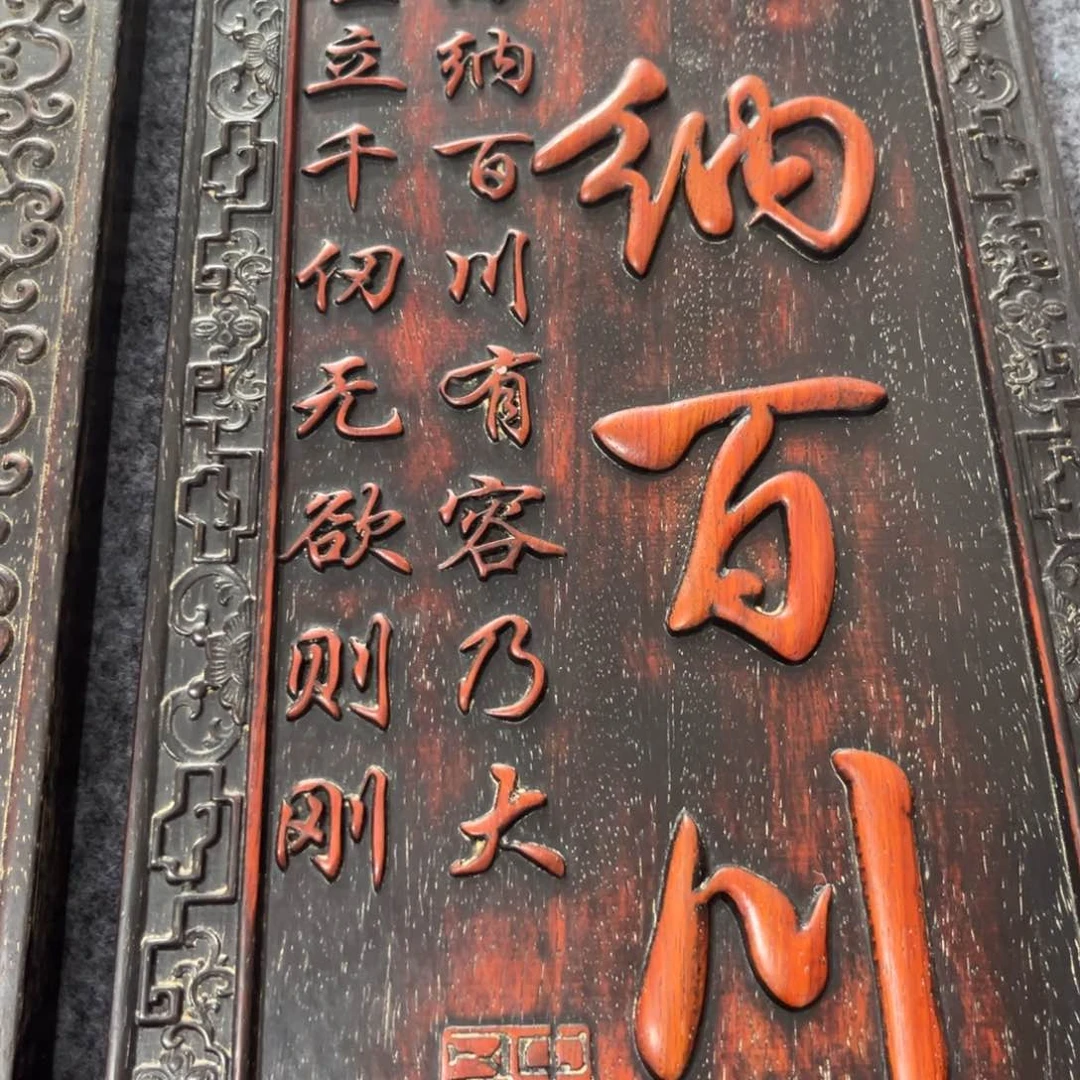 纳百川
纳百川有容乃大
立千仞无欲则刚